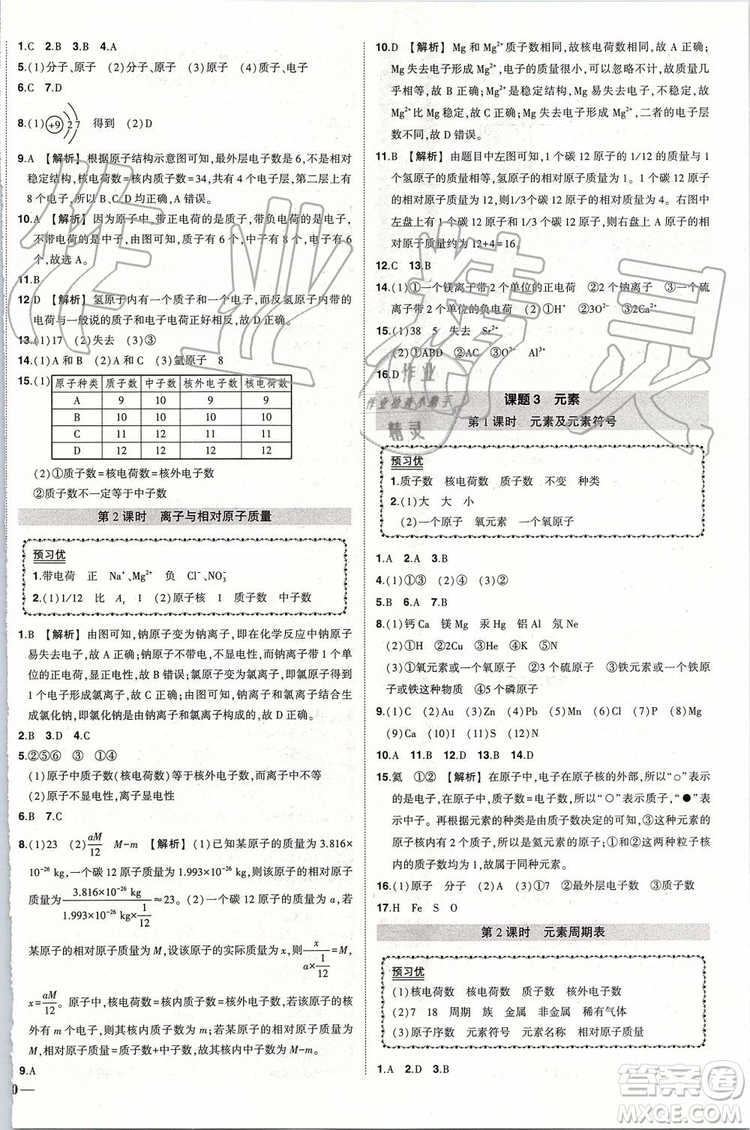 1.C 2.B 3.B 4.A
5.(1)分子、原子 (2)分子、原子 (3)质子、电子
6.C 7.D
8.(1) +9 2 7 得到 (2)D
9.A 【解析】根据原子结构示意图可知,最外层电子数为6,不属于相对
稳定结构,核电荷数=核内质子数=34,共有4个电子层,第二层上有
8个电子,所以B、C、D均正确,A错误。
10.A 【解析】因为原子中,带正电荷的是质子,带负电荷的是电子,
不带电荷的是中子,由图可知,质子有6个,中子有8个,电子有6
个,故选A。
11.B
12.D 【解析】氢原子内有一个质子和一个电子,且反氢原子内的质
子与电子与一般说的质子和电子电荷正好相反,故D错误。
13.B 14.(1)②(2)失去 (3)①和② (4)氩原子 8
15.(1)
原子种类 质子数 中子数 核外电子数 核电荷数
A 9 10 9 9
B 10 10 10 10
C 11 12 11 11
D 12 12 12 12
(2)①质子数=核电荷数=核外电子数
②质子数不一定等于中子数
第2课时 离子与相对原子质量
预习优
1.带电荷 正 Na⁺、Mg²⁺ 负 Cl⁻、NO₃⁻
2.(1)1/12 比 Aᵣ 1 (2)原子核 质子数 中子数
1.B 【解析】由图可知,钠原子变为钠离子,即在化学反应中钠原子
易失去电子,故A正确。钠原子不带电,不显电性,而钠离子带一个
单位的正电荷,显正电性,故B错误。氯原子变为氯离子,即氯原子得到
一个电子形成氯离子,故C正确。氯化钠是由氯离子和钠离子结合生
成氯化钠的,即氯化钠由氯离子和钠离子构成的,故D正确。
2.B 3.D 4.D
5.②⑤⑥ ③ ①④
(1)原子中质子数(核电荷数)等于电子数,而离子中电子数与质子数不等
(2)原子不显电性,离子显电性
6.B 7.C
8.(1)23 (2)aM/12 M-m 【解析】(1)已知某原子的质量为3.816×
10⁻²⁶ kg,一个碳12原子的质量为1.993×10⁻²⁶ kg,则该原子的相对原子质量=
3.816×10⁻²⁶ kg / (1.993×10⁻²⁶ kg×1/12) ≈23。(2)一个碳12原子的质量为a,
某原子的相对原子质量为M,设该原子的实际质量为x,则 x/(a×1/12) =M,
x= aM/12。原子中,核电荷数=核内质子数=核外电子数。由于该
原子的核外有m个电子,则质子数也为m;又由于原子的相对原子质量为
M,相对原子质量=质子数+中子数,故该原子的中子数为M-m。
9.A
10.D 【解析】Mg和Mg²⁺质子数相同,故核电荷数、元素种类相同。
Mg失去电子形成Mg²⁺,电子的质量很小,可以忽略不计,故质量
几乎相等。Mg²⁺是稳定结构,Mg易失去电子,不稳定,故Mg²⁺
比Mg稳定,故C正确;Mg失去电子形成Mg²⁺,二者的电子层
数不同,故D错误。
11.B 【解析】由题目中左图可知,1个碳12原子的1/12的质量与1
个氢原子的质量相等,1个碳12原子的质量相当于12个氢原子
的质量,所以题干中1/3个碳12原子相当于4个氢原子。右图中
左盘上有1个碳12原子和1/3个碳12原子,右盘上有1个氧原
子,故氧原子的相对原子质量约为12+4=16。
12.C 13.B
14.(1)①一个镁离子带2个单位的正电荷 ②2个钠离子 ③一个硫
离子带2个单位的负电荷 (2)①H⁺ ②3O²⁻ ③Ca²⁺
15.(1)38 5 失去 Sr²⁺
(2)①ABD ②AD ③D O²⁻ Al³⁺
16.D
课题3 元素
第1课时 元素及元素符号
预习优
1.质子数 核电荷数 质子数 不变 种类
2.(1)大 大 小
(2)①一个原子 氧元素 ②一个氧原子
1.C
2.(1)①③ (2)④ (3)②
3.B 4.A 5.B 6.C 7.A
8.(1)钙Ca 镁Mg 汞Hg 铝Al 氖Ne
(2)①O ②2Cu ③nFe ④2H
(3)①氧元素或一个氧原子 ②2个硫原子 ③铁元素或一个铁原
子或铁这种物质 ④5个磷原子
9.(1)C (2)Au (3)Zn (4)Pb (5)Cu (6)P (7)Hg (8)Mg
(9)Ca (10)Na (11)I (12)S (13)W
10.A 11.C 12.D 13.B 14.D
15.氦 ①② 【解析】在原子中,电子在原子核的外部,所以“○”表示
的是电子。原子中,质子数=电子数,所以“○”表示质子,“●”表
示的是中子。由于元素种类是由质子数决定的,可知①和②的质
子数都为2,故①②属于同一种元素,是氦元素的原子;①和②两种粒子核
内的质子数均为1,故属于同种元素。
16.(1)原子 分子 (2)Au (3)①7 ②最外层电子数 ③质子数
17.H Fe S O
第2课时 元素周期表
预习优
(1)核电荷数 核电荷数 质子数 核外电子数
(2)7 18 周期 族 金属 非金属 稀有气体
(3)原子序数 元素符号 元素名称 相对原子质量
1.A 2.D 3.B
作业精灵
答案圈
MXQE.COM